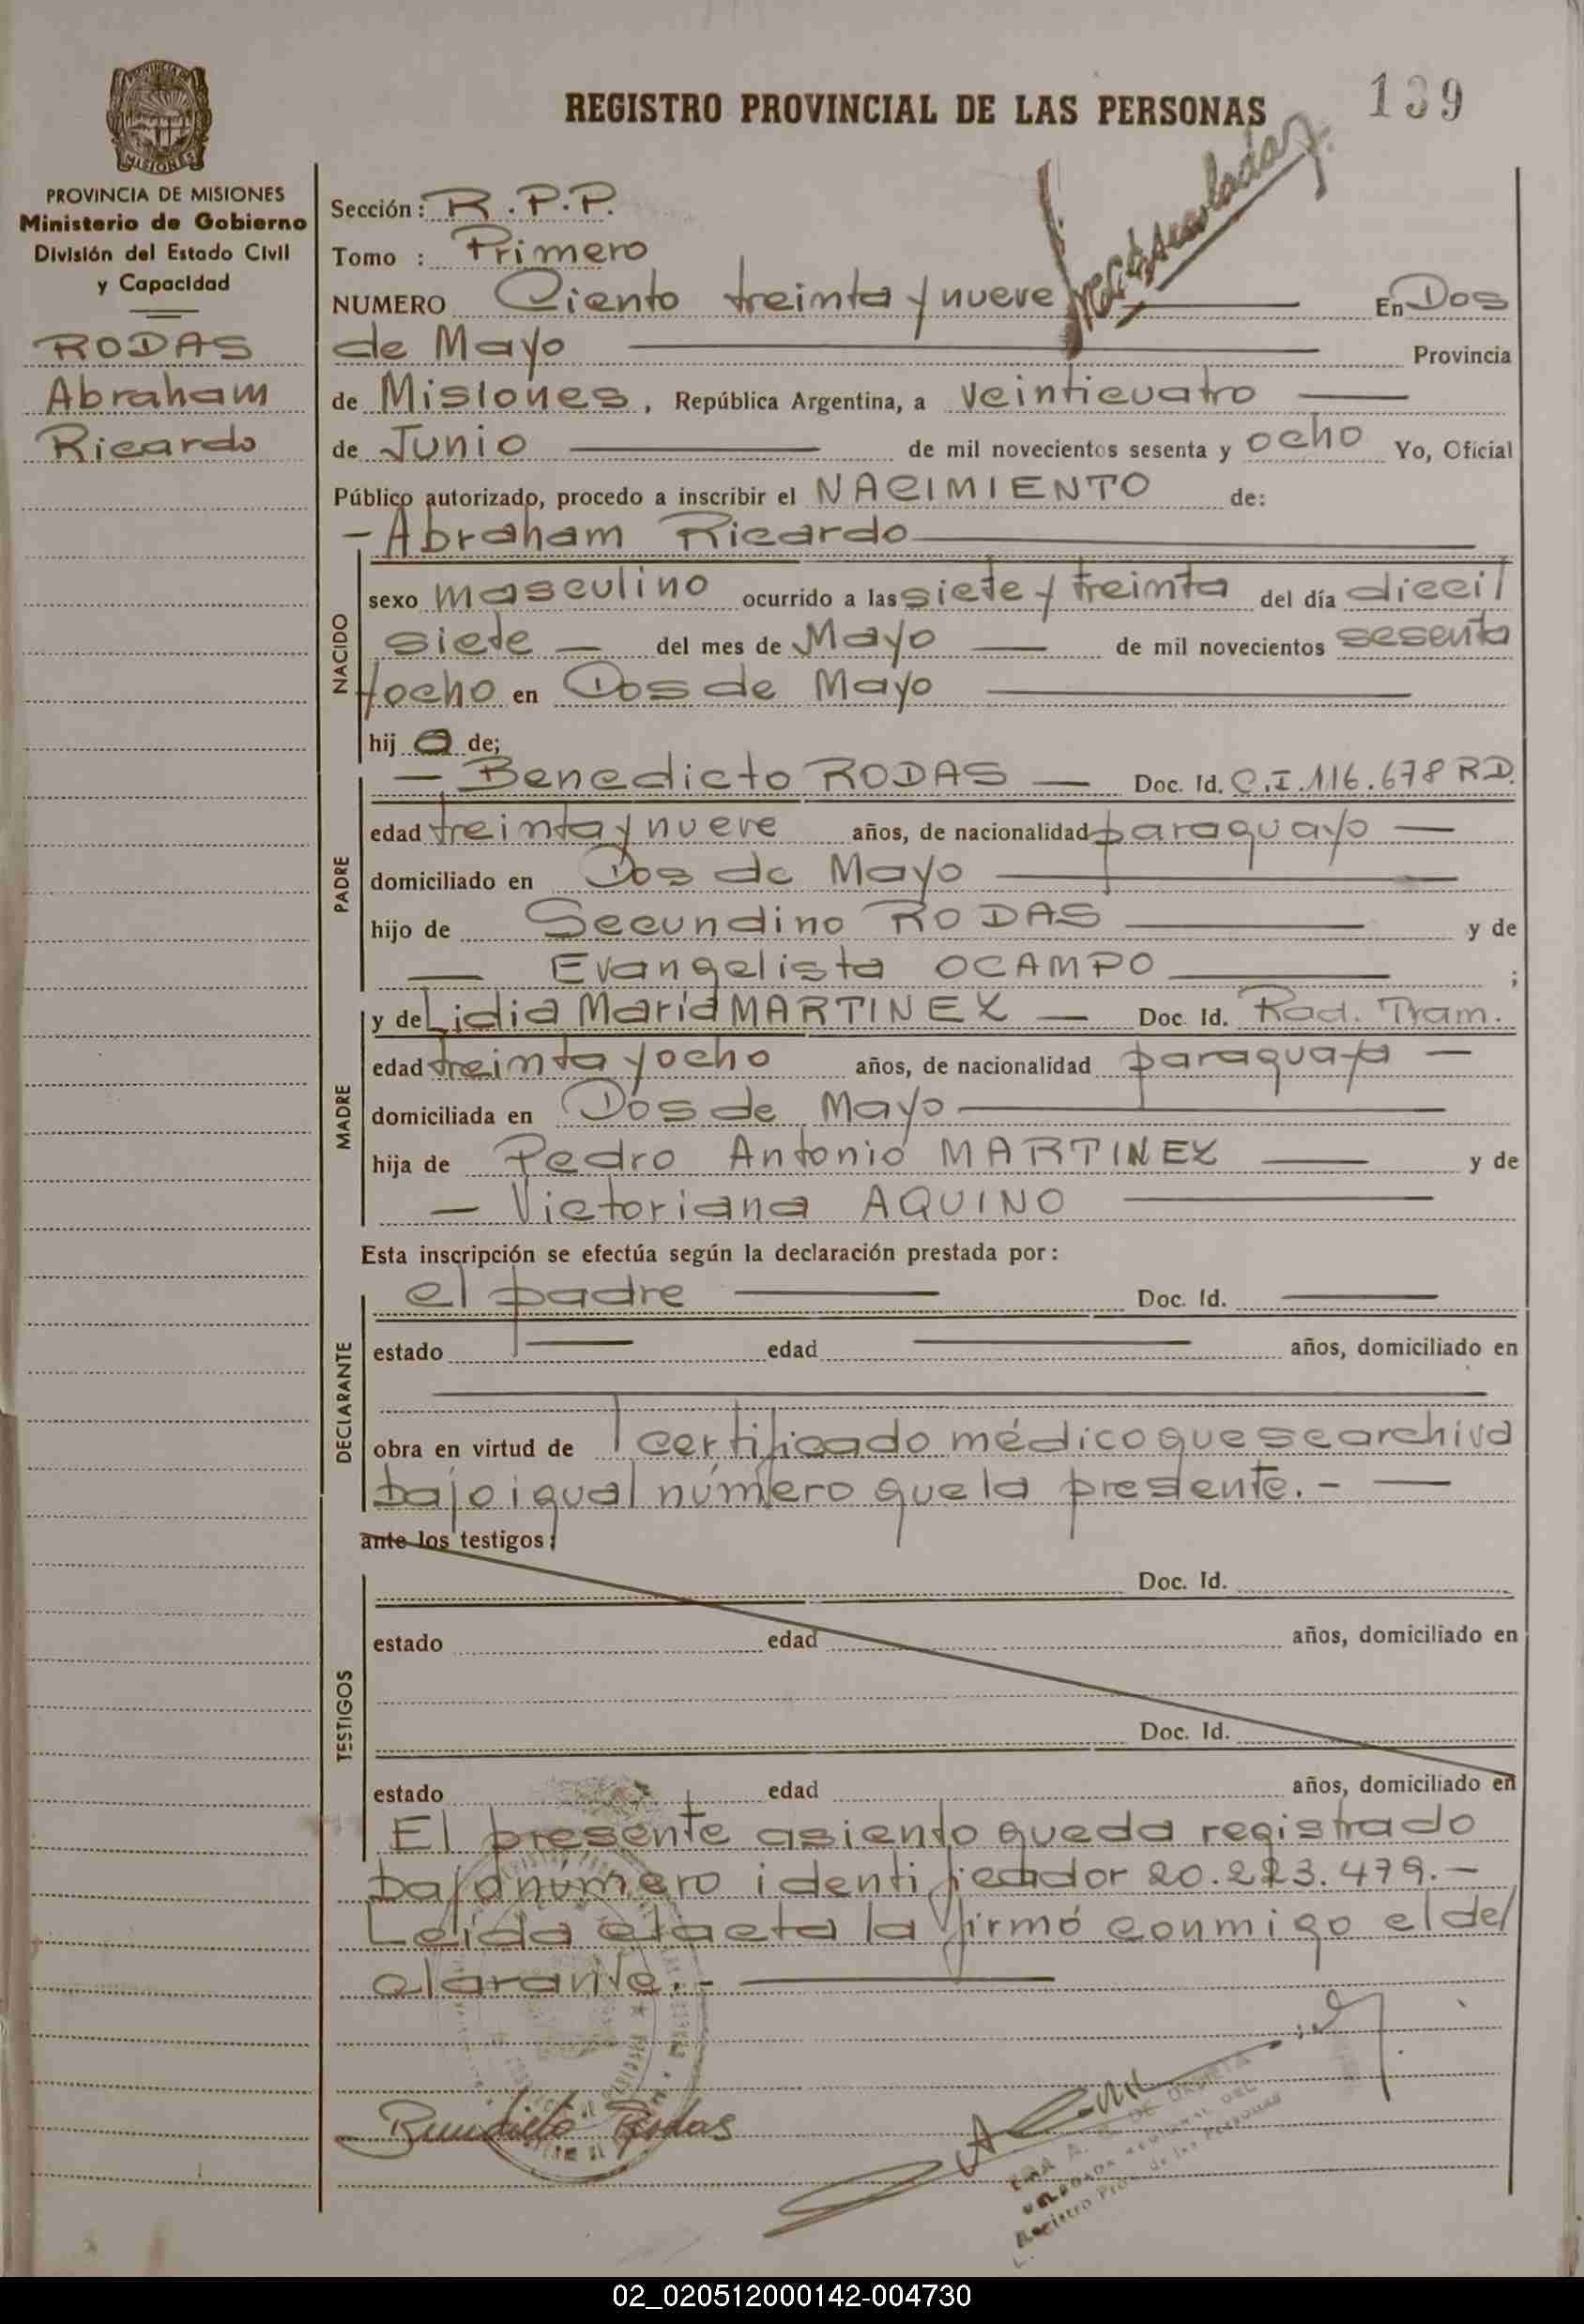 REGISTRO PROVINCIAL DE LAS PERSONAS
139
PROVINCIA DE MISIONES
Ministerio de Gobierno
División del Estado Civil
y Capacidad
RODAS
Abraham
Ricardo
Sección: R.P.P.
Tomo : Primero
NUMERO Ciento treinta y nueve En Dos
de Mayo Provincia
de Misiones, República Argentina, a veinticuatro
de Junio de mil novecientos sesenta y ocho Yo, Oficial
Público autorizado, procedo a inscribir el NACIMIENTO de:
- Abraham Ricardo
NACIDO
sexo masculino ocurrido a las siete y treinta del día dieci
siete — del mes de Mayo — de mil novecientos sesenta
y ocho en Dos de Mayo
hij o de;
PADRE
— Benedicto RODAS — Doc. Id. C.I. 116.678 R.D.
edad treinta y nueve años, de nacionalidad paraguayo —
domiciliado en Dos de Mayo
hijo de Secundino RODAS y de
— Evangelista OCAMPO ;
MADRE
y de Lidia María MARTINEZ — Doc. Id. Rad. Tram.
edad treinta y ocho años, de nacionalidad paraguaya —
domiciliada en Dos de Mayo
hija de Pedro Antonio MARTINEZ — y de
— Victoriana AQUINO
Esta inscripción se efectúa según la declaración prestada por:
DECLARANTE
el padre Doc. Id.
estado edad años, domiciliado en
obra en virtud de certificado médico que se archiva
bajo igual número que la presente.-
ante los testigos:
TESTIGOS
Doc. Id.
estado edad años, domiciliado en
Doc. Id.
estado edad años, domiciliado en
El presente asiento queda registrado
bajo número identificador 20.223.479.-
Leída el acta la firmó conmigo el de
clarante.-
Benedicto Rodas
02_020512000142-004730